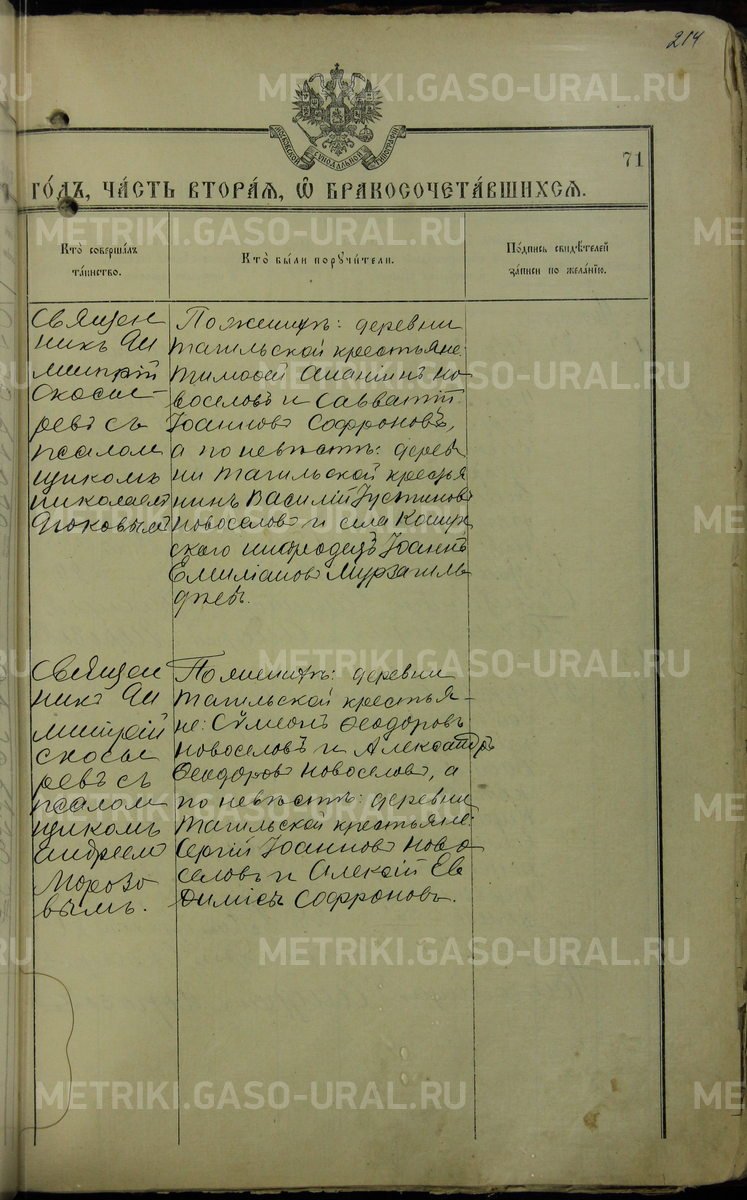 214
МОСКОВСКОЙ СѴНОДАЛЬНОЙ ТИПОГРАФІИ
71
ГО́ДЪ, ЧА́СТЬ ВТОРА́Я, Ѡ БРАКОСОЧЕТА́ВШИХСЯ.
Кто̀ соверша́лъ
та́инство.
Кто̀ бы́ли поручи́тели.
По́дпись свидѣ́телей
за́писи по жела́нію.
Священ
никъ Ди
митрій
Скосы-
ревъ съ
псалом
щикомъ
Николаемъ
Поженихѣ: деревни
Тагильской крестьяне:
Тимофей Ананіинъ Но
воселовъ и Савватій
Іоанновъ Софроновъ,
а по невѣстѣ: дерев
ни Тагильской крестья
нинъ Василій Іустиновъ
Новоселовъ и села Кошук
ского инородецъ Іоаннъ
Емиліановъ Мурзагиль
дѣевъ.
Священ
никъ Ди
митрій
Скосы
ревъ съ
псалом
щикомъ
Андреемъ
Морозо
вымъ.
По женихѣ: деревни
Тагильской крестья-
не: Сѵмеонъ Ѳеодоровъ
Новоселовъ и Александръ
Ѳеодоровъ Новоселовъ, а
по невѣстѣ: деревни
Тагильской крестьяне:
Сергій Іоанновъ Ново
селовъ и Алексій Ев
Софроновъ.
METRIKI.GASO-URAL.RU